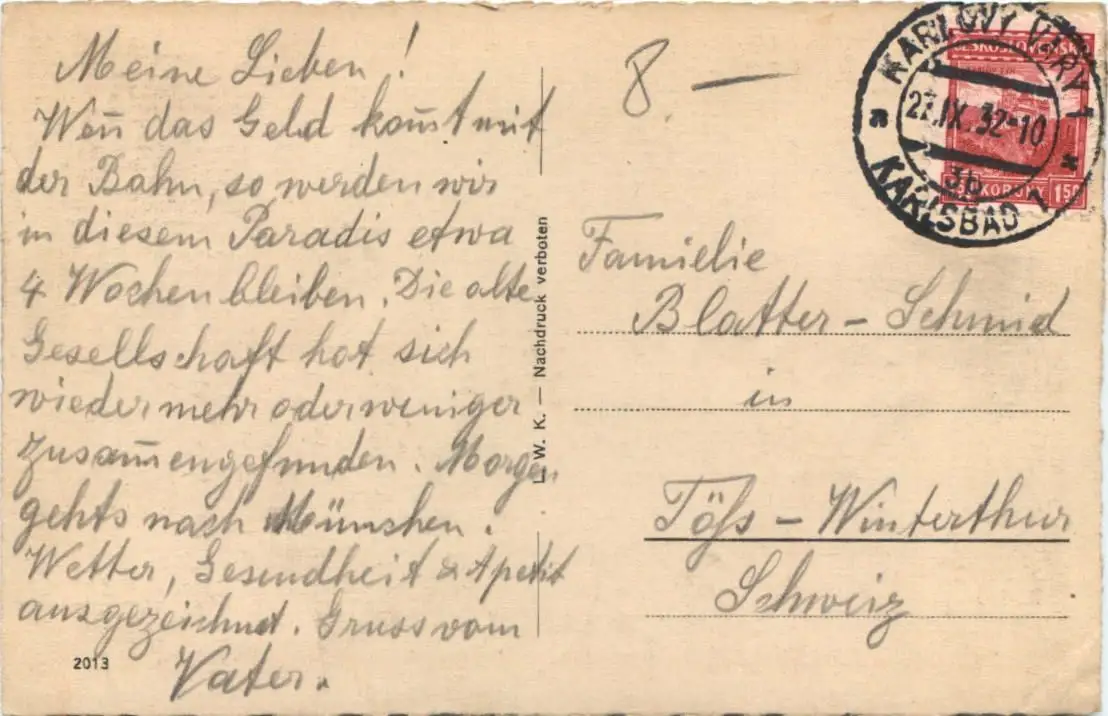 Meine Lieben!
Wen̄ das Geld kom̄t mit
der Bahn, so werden wir
in diesem Paradis etwa
4 Wochen bleiben. Die alte
Gesellschaft hat sich
wieder mehr oder weniger
zusam̄engefunden. Morgen
gehts nach Münschen.
Wetter, Gesundheit & Apetit
ausgezeichnet. Gruss vom
Vater.
2013
L. W. K. — Nachdruck verboten
8. —
KARLOVY VARY 1
ČESKOSLOVENSKO
IX. 32-10
3b
KORUNY 1 50
KARLSBAD 1
Familie
Blatter - Schmid
in
Töss - Winterthur
Schweiz